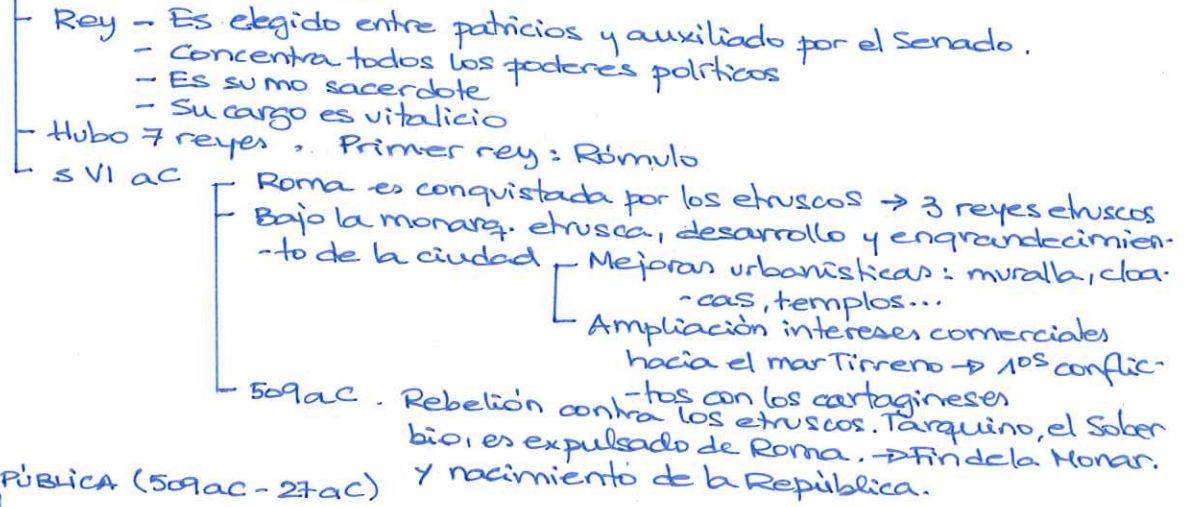 Rey - Es elegido entre patricios y auxiliado por el Senado.
- Concentra todos los poderes políticos
- Es sumo sacerdote
- Su cargo es vitalicio
Hubo 7 reyes. Primer rey: Rómulo
s VI aC
Roma es conquistada por los etruscos → 3 reyes etruscos
Bajo la monarq. etrusca, desarrollo y engrandecimien-
-to de la ciudad
Mejoras urbanísticas: muralla, cloa-
-cas, templos...
Ampliación intereses comerciales
hacia el mar Tirreno → 1os conflic-
-tos con los cartagineses
509 aC. Rebelión contra los etruscos. Tarquino, el Sober
bio, es expulsado de Roma. → Fin de la Monar.
y nacimiento de la República.
PÚBLICA (509 aC - 27 aC)